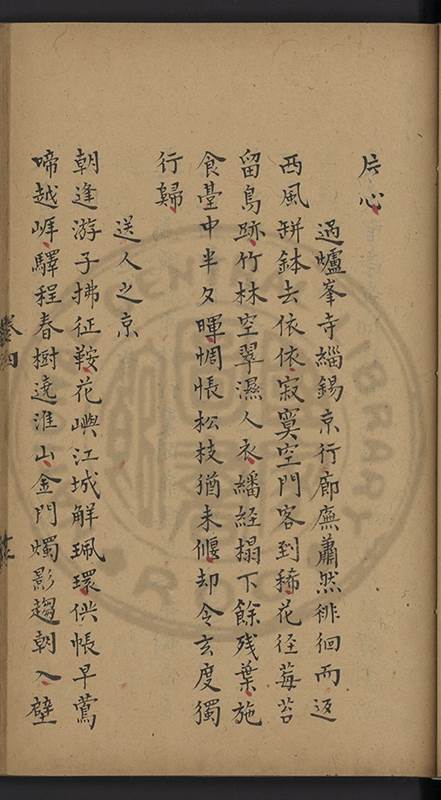 片心
過爐峯寺緇錫京行廊廡蕭然徘徊而返
西風缾鉢去依依寂寞空門客到稀花径莓苔
留鳥跡竹林空翠濕人衣繙経搨下餘残葉施
食臺中半夕暉惆悵松枝猶未偃却令玄度獨
行歸
送人之京
朝逢游子拂征鞍花嶼江城解珮環供帳早鶯
啼越岸驛程春樹遶淮山金門燭影趨朝入壁